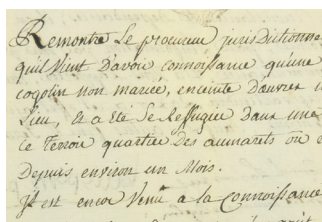 Remontre Le procureur jurisdictionne
quil vient d'avoir connoissance qu'une
cogolin non mariée, enceinte d'œuvres i
Lieu, & a été Se Refugiée dans une
le terroir quartier des aumarets ou e
Depuis environ un Mois.
jl est encor venu a la Connoissance